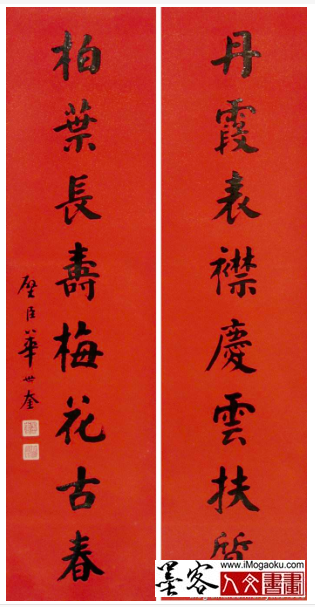 丹霞表襟慶雲扶質
柏葉長壽梅花古春
璧臣華世奎
墨客
www.iMogaoku.com
人文書畫